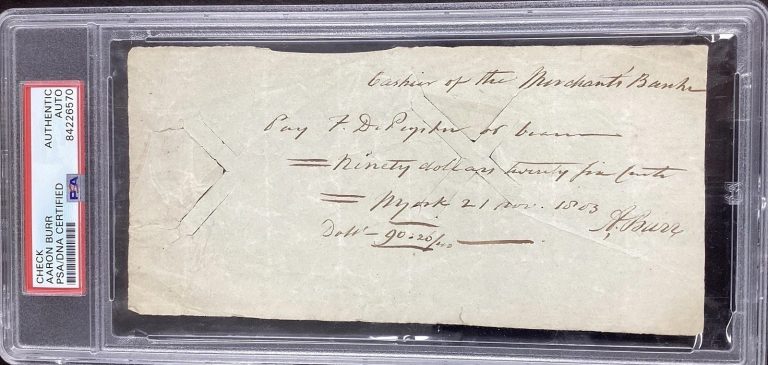 AUTHENTIC
AUTO
84226570
PSA
CHECK
AARON BURR
PSA/DNA CERTIFIED
Cashier of the Merchants Bank
Pay F. DePeyster or bearer
= Ninety dollars twenty five Cents
= NYork 21 Nov. 1803
A. Burr
Dolls - 90.